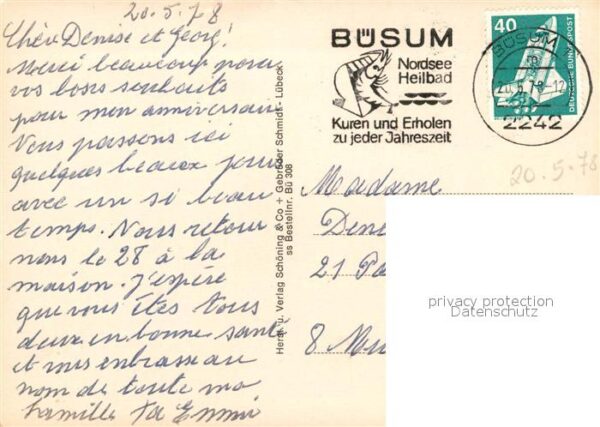 20.5.78
Chère Denise et Georg!
Merci beaucoup pour
vos bons souhaits
pour mon anniversaire
Vous passons ici
quelques beaux jours
avec un si beau
temps. Nous retour
nons le 28 à la
maison. J'espère
que vous êtes tous
deux en bonne santé
et vous embrasse au
nom de toute ma
famille ta Emmi
Herst. u. Verlag Schöning & Co + Gebrüder Schmidt - Lübeck
ss Bestellnr. Bü 308
BÜSUM
Nordsee
Heilbad
Kuren und Erholen
zu jeder Jahreszeit
40
DEUTSCHE BUNDESPOST
BÜSUM
2242
20.5.78
Madame
Deni
21 Pa
8 Mu
privacy protection
Datenschutz